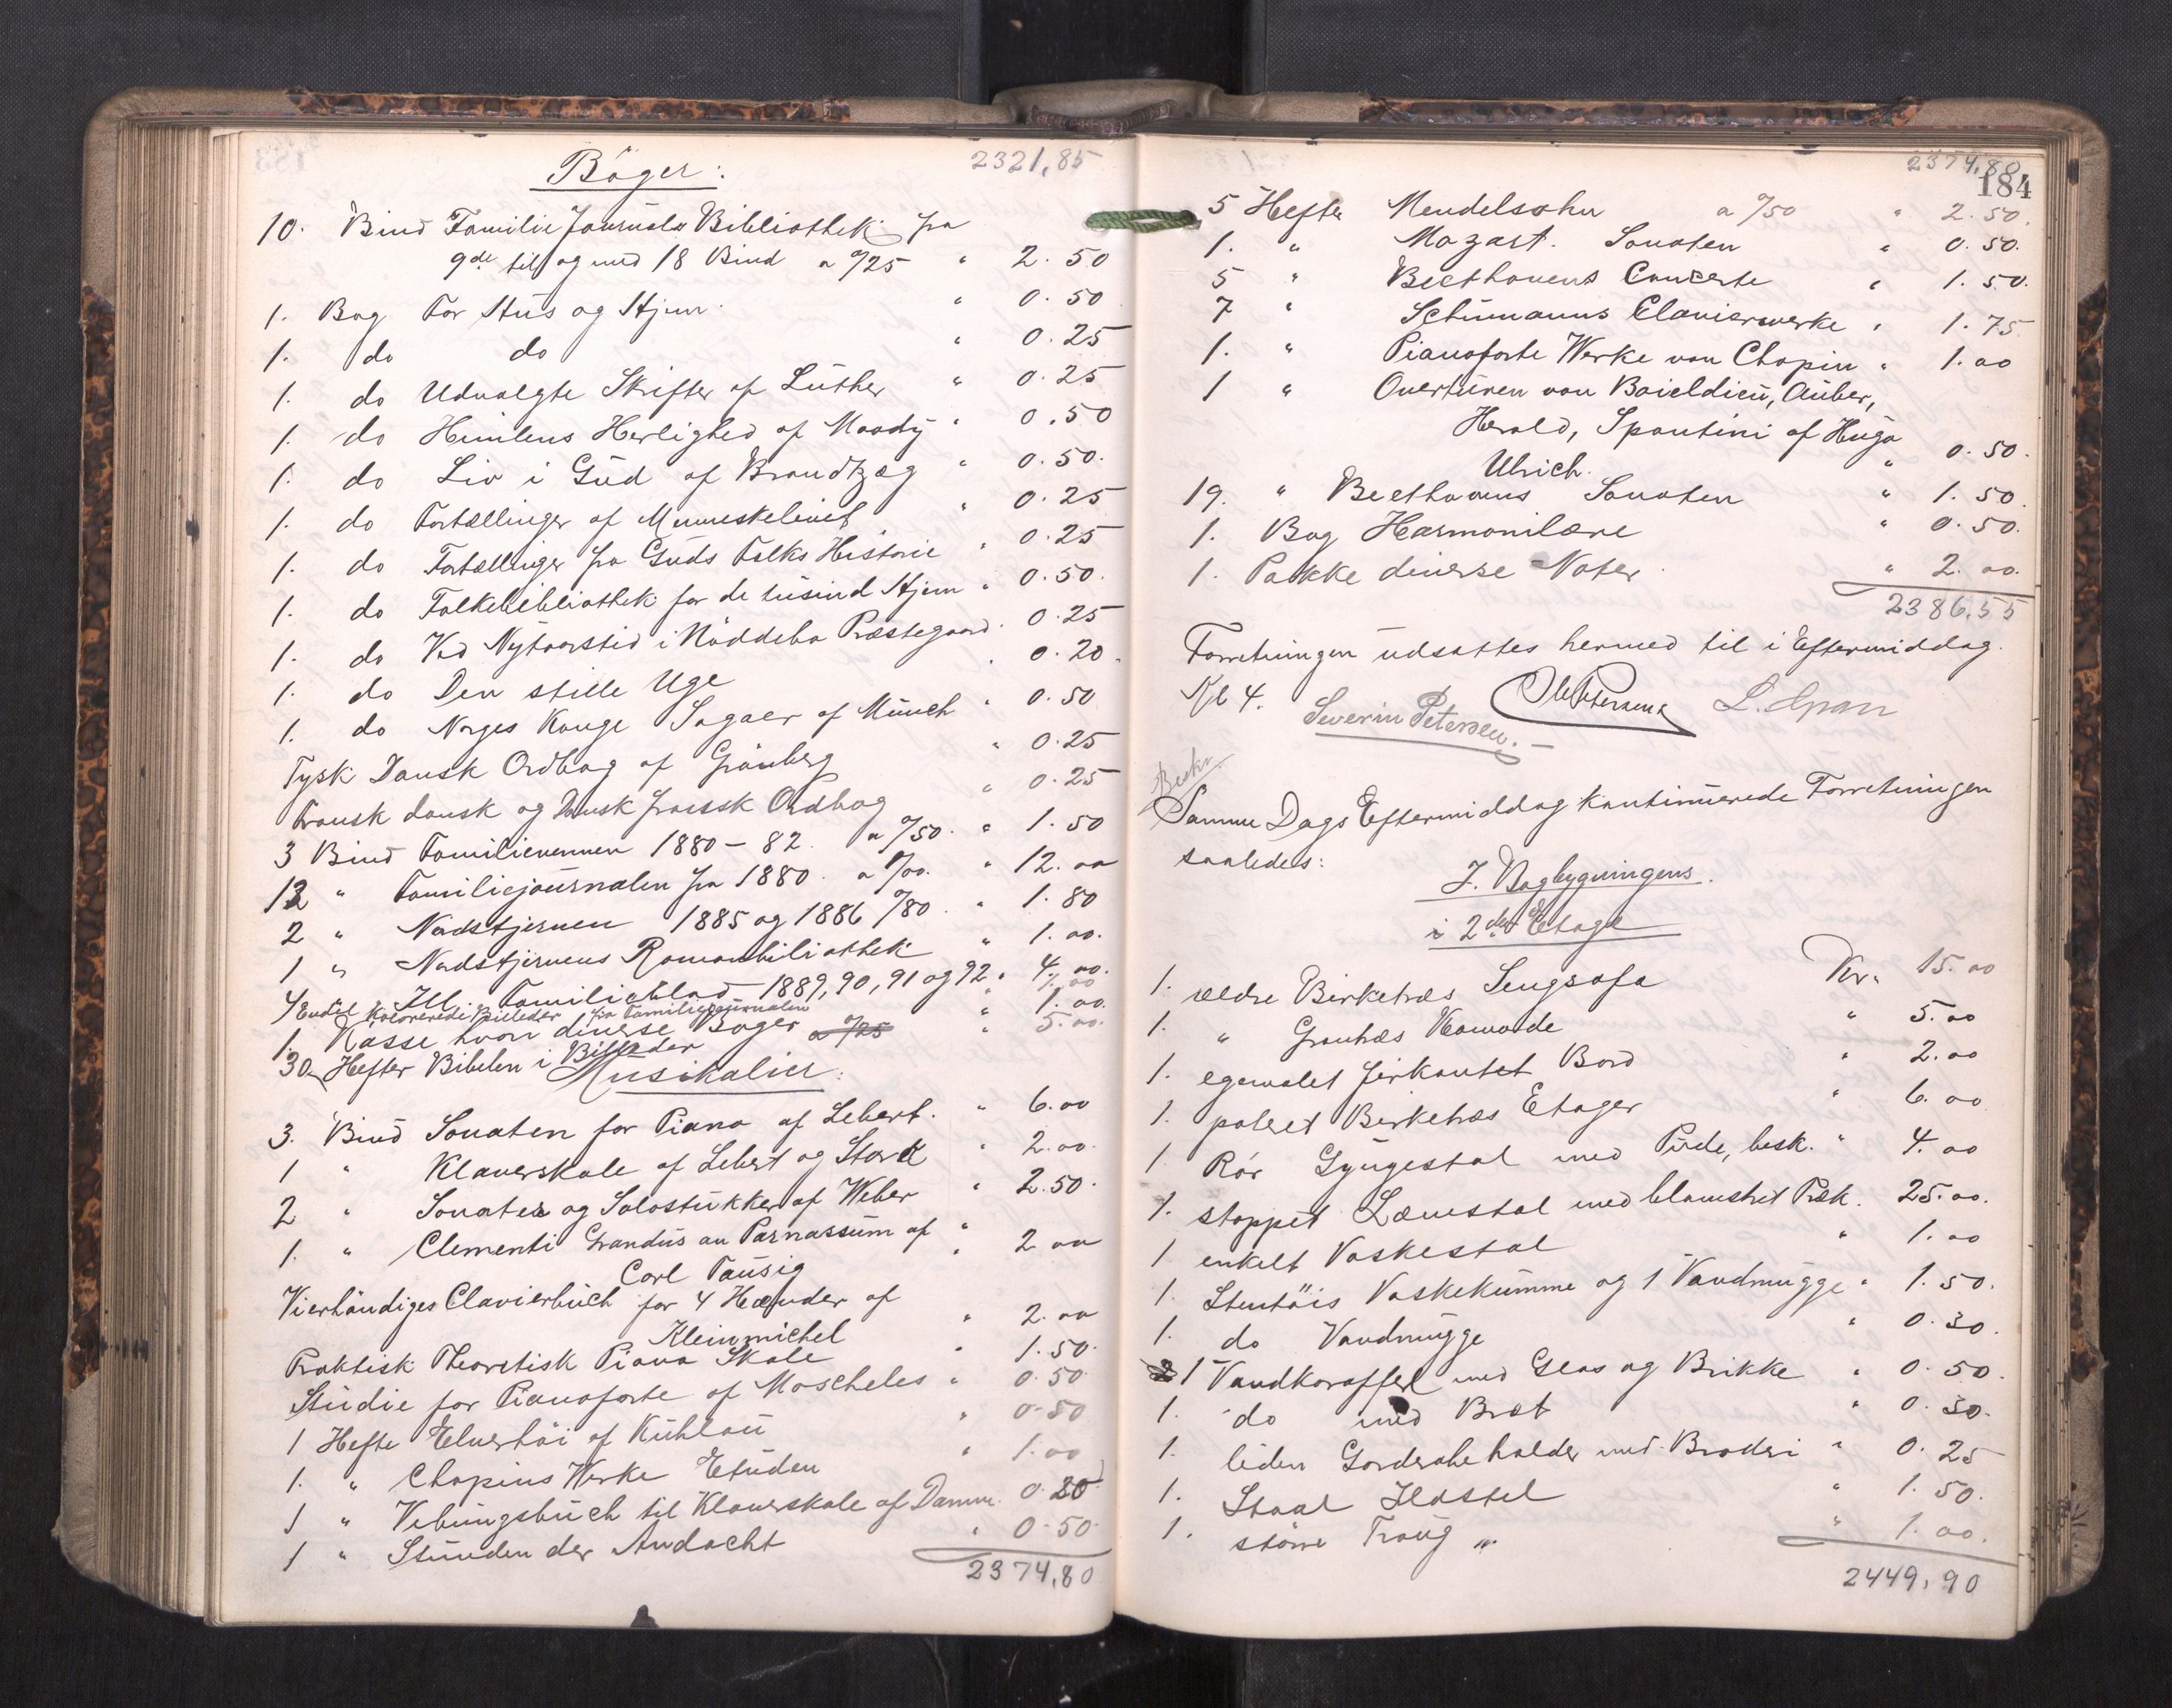 Bøger: 2321,85
10. Bind Familie Journals Bibliothek fra
9de til og med 18 Bind a %25 " 2.50
1. Bog For Hus og Hjem " 0.50
1. do do " 0.25
1. do Udvalgte Skrifter af Luther " 0.25
1. do Himlens Herlighed af Moody " 0.50
1. do Liv i Gud af Brandtzæg " 0.50.
1. do Fortællinger af Menneskelivet " 0.25
1. do Fortællinger fra Guds Folks Historie " 0.25
1. do Folkebibliothek for de tusind Hjem " 0.50.
1. do Ved Nytaarstid i Nøddebo Præstegaard. 0.25
1. do Den stille Uge " 0.20.
1. do Norges Konge Sagaer af Munch " 0.50
Tysk Dansk Ordbog af Grønberg " 0.25
Fransk dansk og Dansk fransk Ordbog " 0.25
3 Bind Familievennen 1880-82. a %50. " 1.50
12 " Familiejournalen fra 1880. a 1/00. " 12.00
2 " Nordstjernen 1885 og 1886 %80. " 1.80
1 " Nordstjernens Romanbibliothek " 1.00.
4 Ill. Familieblad 1889, 90, 91 og 92. " 4.00.
Endel kolorerede Billeder fra Familiejournalen
1. Kasse hvori diverse Bøger a %25 " 1.00.
30 Hefter Bibelen i Billeder " 5.00.
Musikalier:
3. Bind Sonaten for Piano af Lebert. " 6.00
1 " Klaverskole af Lebert og Stark " 2.00.
2 " Sonater og Solostükker af Weber " 2.50.
1. " Clementi Grandus an Parnassum af "
Carl Tausig " 2.00
Vierhändiges Clavierbuch for 4 Hænder af
Kleinmichel " 2.00
Praktisk Theoretisk Piano Skole " 1.50.
Studie for Pianoforte af Moscheles " 0.50
1 Hefte Elverhøi af Kuhlau " 0.50
1. " Chopins Werke Etuden " 1.00
1 " Uebungsbuch til Klaverskole af Damm. 0.80
1 " Stunden der Andacht " 0.50
2374,80
2374,80
184
5 Hefter Mendelsohn a %50 " 2.50.
1. " Mozart. Sonaten " 0.50.
5 " Beethovens Concerte " 1.50.
7 " Schumanns Clavierwerke " 1.75
1. " Pianoforte Werke von Chopin " 1.00
1 " Overturen von Boieldieu, Auber,
Herold, Spontini af Hugo
Ulrich. " 0.50.
19. " Beethovens Sonaten " 1.50.
1. Bog Harmonilære " 0.50.
1. Pakke diverse Noter. " 2.00.
2386.55
Forretningen udsattes hermed til i Eftermiddag.
Kl 4. Severin Petersen.
Samme Dags Eftermiddag kontinuerede Forretningen
saaledes:
I. Bagbygningens.
i 2den Etage
1. ældre Birketræs Sengsofa Kr. 15.00
1. " Grantræs Komode " 5.00
1. egemalet firkantet Bord " 2.00
1. poleret Birketræs Etager " 6.00
1 Rør Gyngestol med Pude, besk. " 4.00
1. stoppet Lænstol med blomstret Træk. 25.00.
1 enkelt Vaskestol " 1.00
1. Stentøis Vaskekumme og 1 Vandmugge " 1.50.
1. do Vandmugge " 0.30.
1 Vandkaraffel med Glas og Brikke " 0.50.
1. do med Bræt " 0.30.
1. liden Garderobeholder med Broderi " 0.25
1. Staal Ildstel " 1.50.
1. større Traug " " 1.00.
2449,90